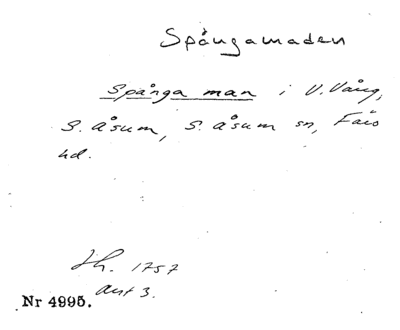 Spångamaden
Spånga man i V. Vång,
S. Åsum, S. Åsum sn, Färs
hd.
Lh. 1757
akt 3.
Nr 4995.